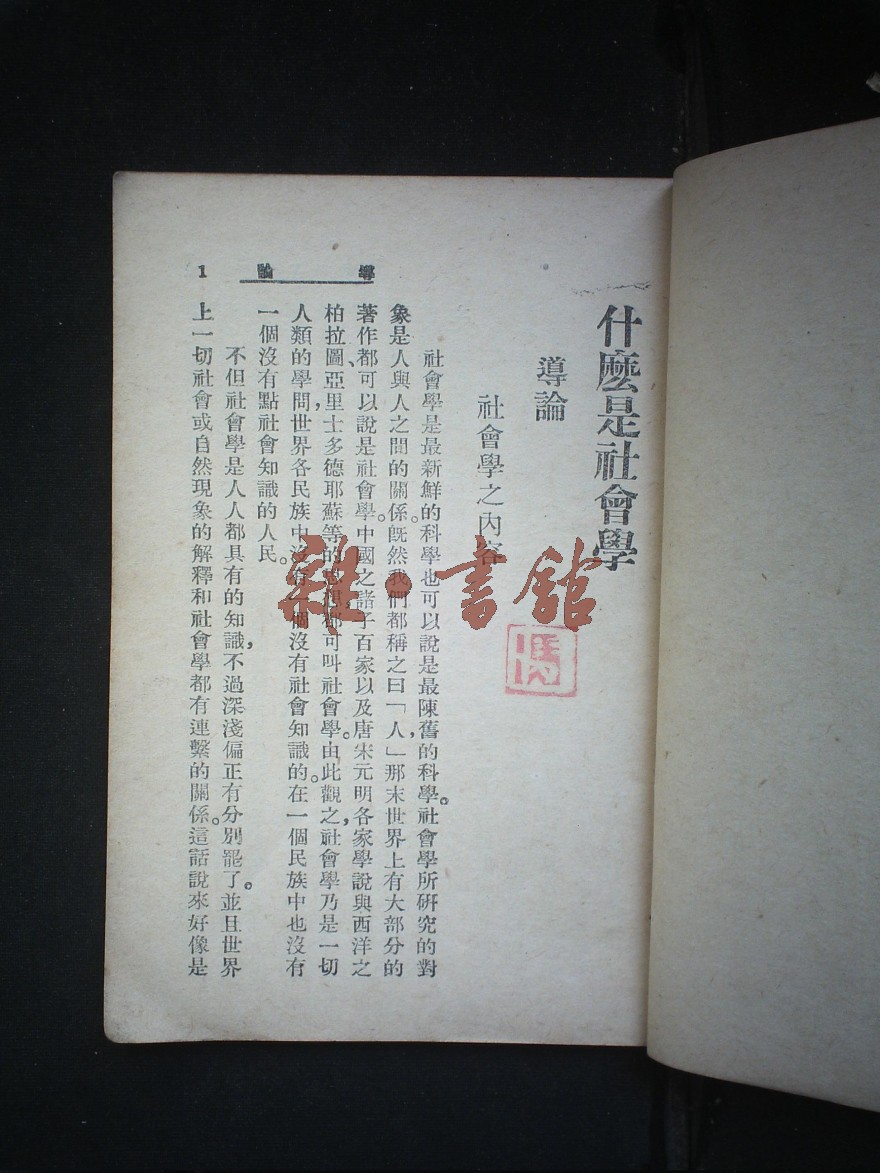 什麽是社會學
導論
社會學之內容
社會學是最新鮮的科學也可以說是最陳舊的科學。社會學所研究的對
象是人與人之間的關係。旣然我們都稱之曰「人」，那末世界上有大部分的
著作都可以說是社會學。中國之諸子百家以及唐宋元明各家學說與西洋之
柏拉圖、亞里士多德，耶蘇等的思想都可叫社會學。由此觀之，社會學乃是一切
人類的學問。世界各民族中沒有一個沒有社會知識的。在一個民族中也沒有
一個沒有點社會知識的人民。
不但社會學是人人都具有的知識，不過深淺偏正有分別罷了。並且世界
上一切社會或自然現象的解釋和社會學都有連繫的關係。這話說來好像是
導論 1
雜·書館
馮